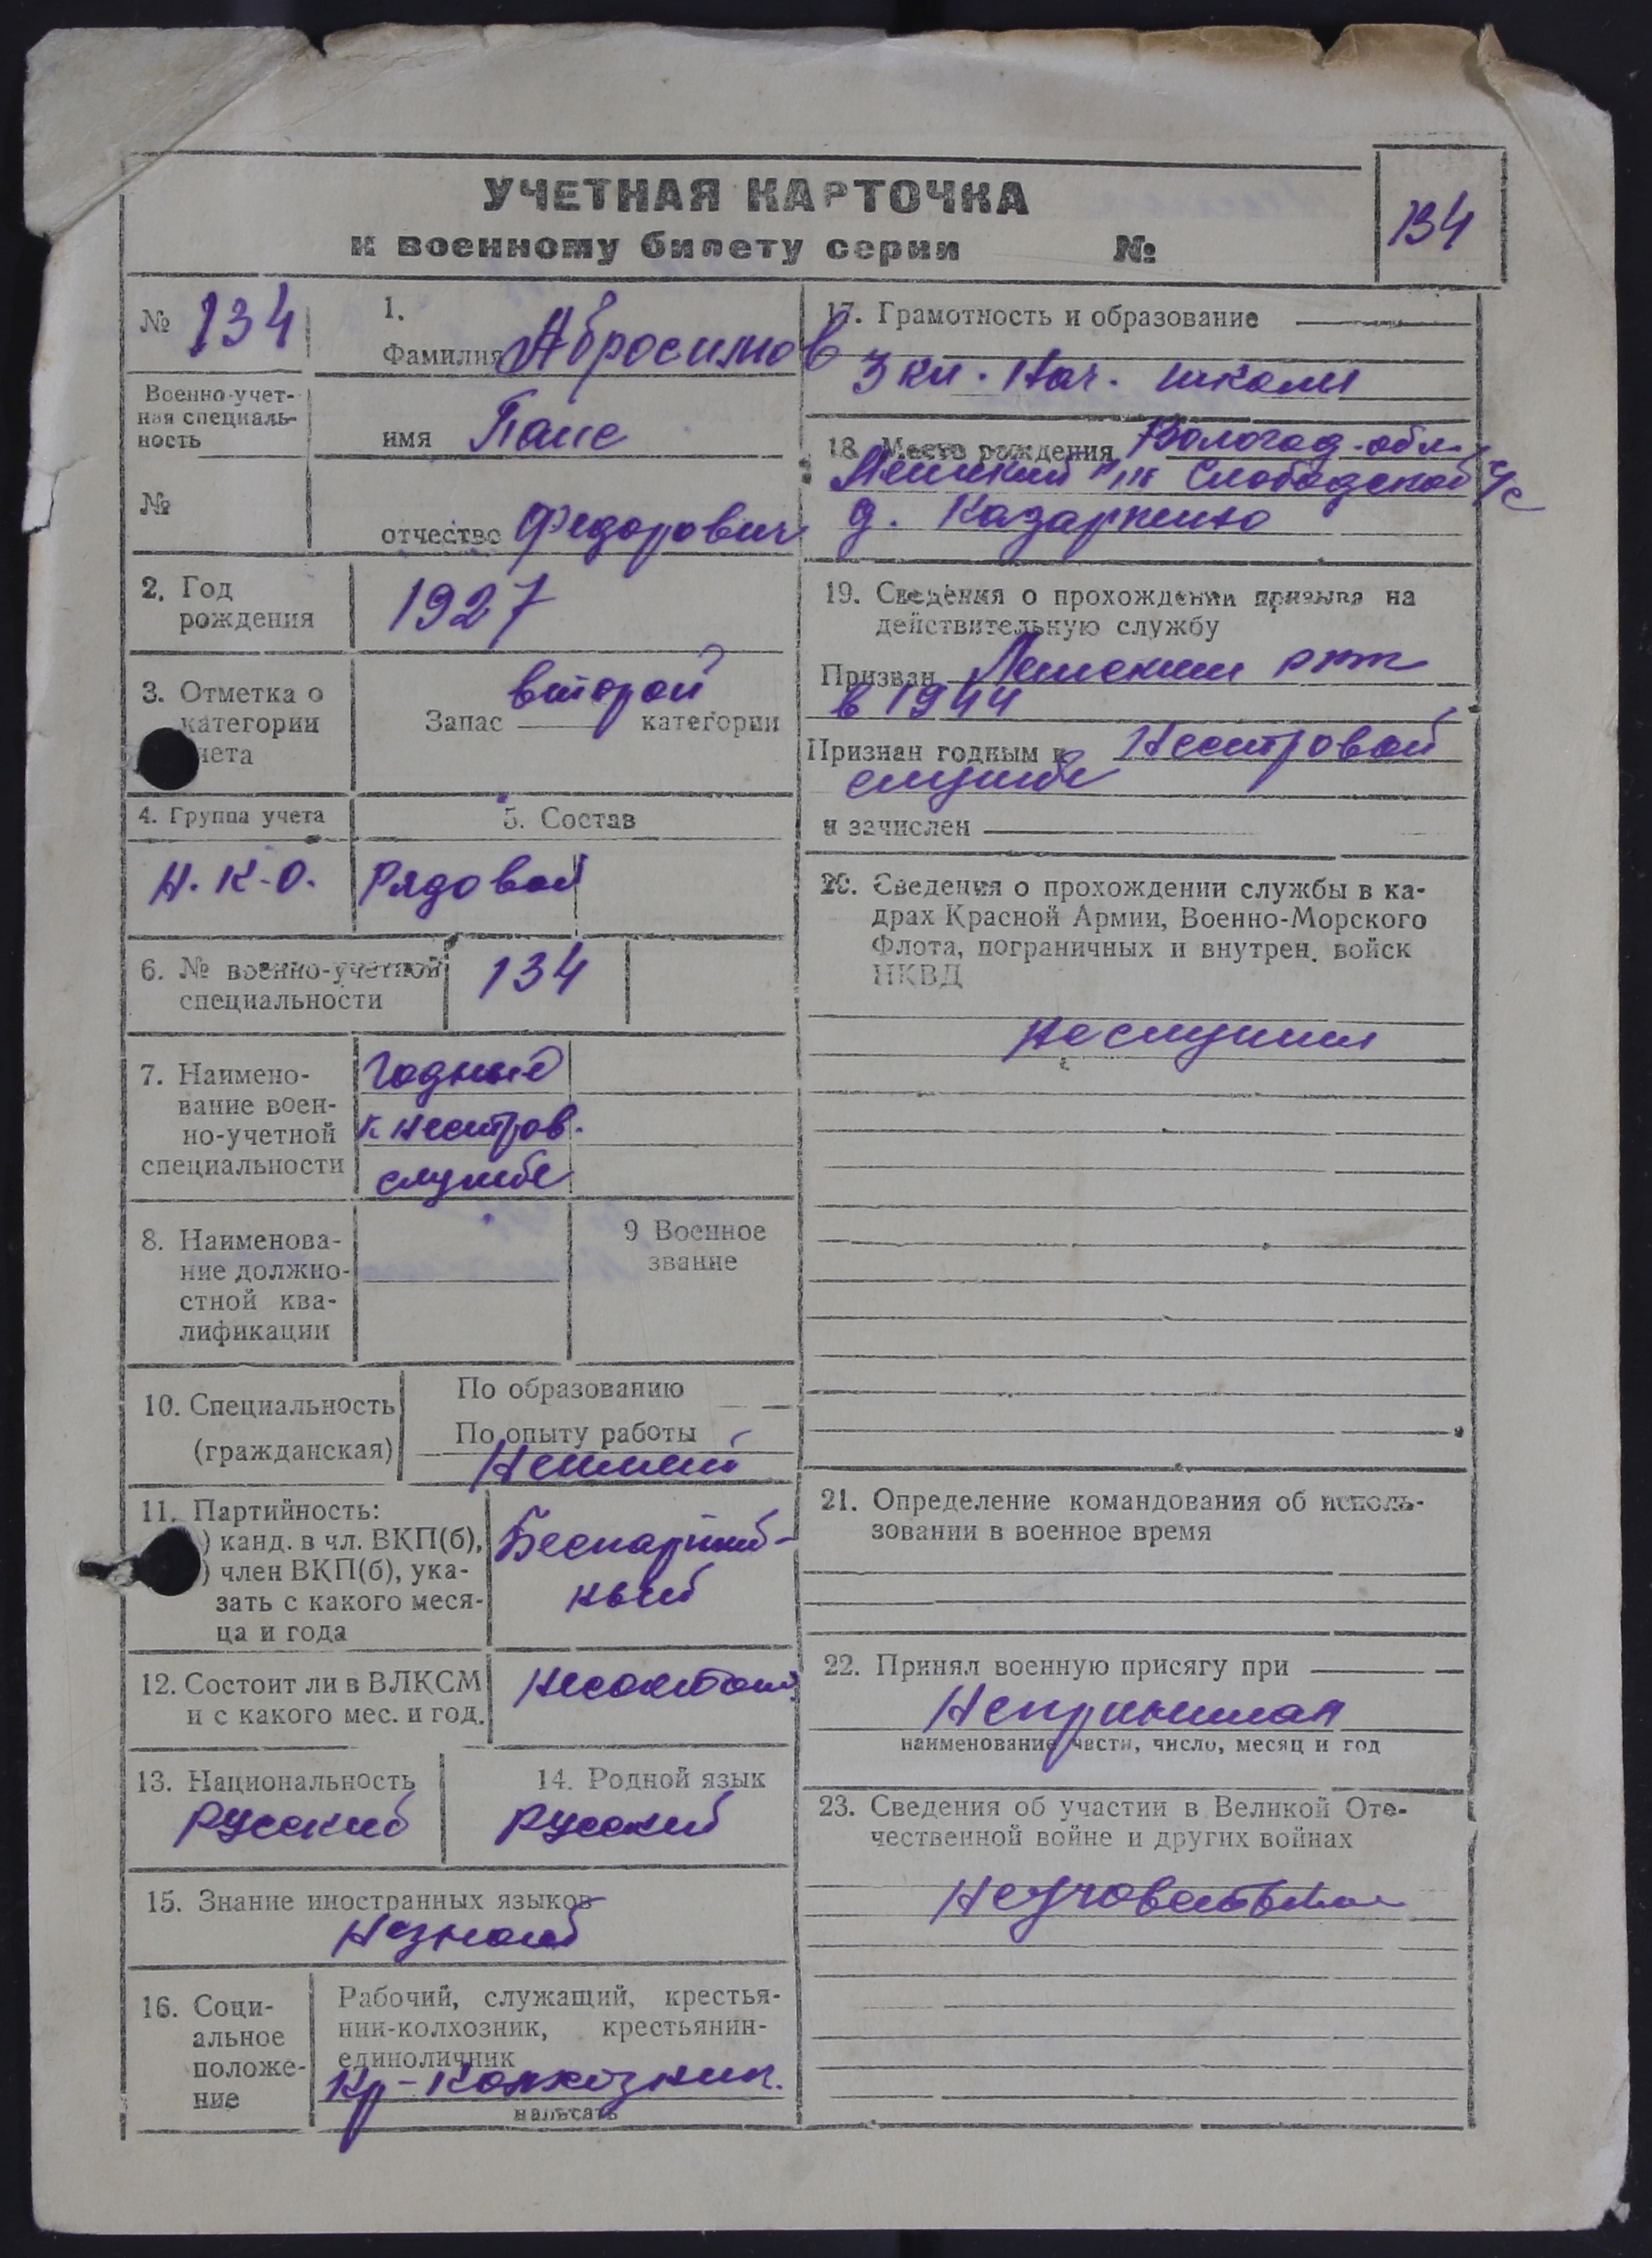 УЧЕТНАЯ КАРТОЧКА
134
к военному билету серии №
№ 134
1.
Фамилия Абросимов
Военно-учет-
ная специаль-
ность
имя
№
отчество Федорович
2. Год
рождения
1927
3. Отметка о
категории
Запас второй категории
4. Группа учета
5. Состав
Н.К.О.
Рядовой
6. № военно-учетной
специальности
134
7. Наимено-
вание воен-
но-учетной
специальности
Годный
к нестров.
службе
8. Наименова-
ние должно-
стной ква-
лификации
9 Военное
звание
10. Специальность
(гражданская)
По образованию
По опыту работы
11. Партийность:
) канд. в чл. ВКП(б),
) член ВКП(б), ука-
зать с какого меся-
ца и года
Беспартий-
ный
12. Состоит ли в ВЛКСМ
и с какого мес. и год.
Несостоит
13. Национальность
Русский
14. Родной язык
Русский
15. Знание иностранных языков
16. Соци-
альное
положе-
ние
Рабочий, служащий, крестья-
нин-колхозник, крестьянин-
единоличник
Кр-Колхозник.
написать
17. Грамотность и образование
3 кл. Нач. школы
18. Место рождения Вологод. обл.
Слободской с/с
д.
19. Сведения о прохождении призыва на
действительную службу
Призван
в 1944
Признан годным к Нестровой
службе
и зачислен
20. Сведения о прохождении службы в ка-
драх Красной Армии, Военно-Морского
Флота, пограничных и внутрен. войск
НКВД
Не служил
21. Определение командования об исполь-
зовании в военное время
22. Принял военную присягу при
Непринимал
наименование части, число, месяц и год
23. Сведения об участии в Великой Оте-
чественной войне и других войнах